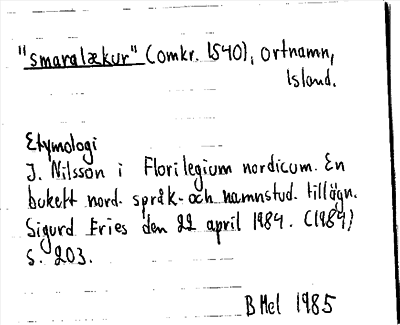 "smaralækur" (omkr. 1540), ortnamn,
Island.
Etymologi
J. Nilsson i Florilegium nordicum. En
bukett nord. språk- och namnstud. tillägn.
Sigurd Fries den 22 april 1984. (1984)
S. 203.
B Mel 1985